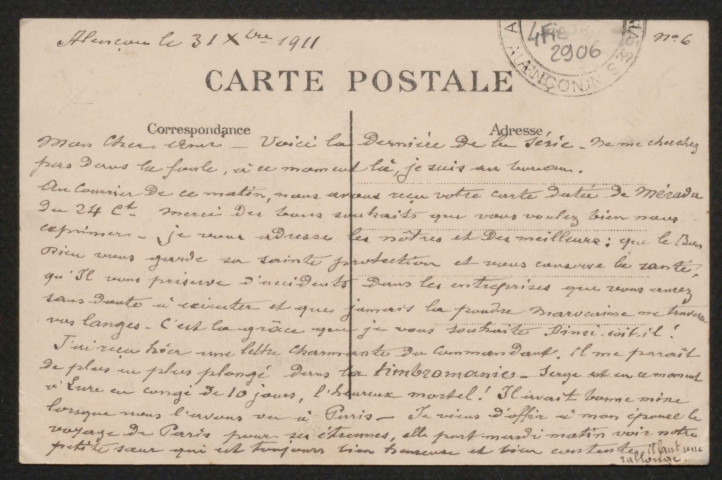 Alençon le 31 Xbre 1911
4Fi
2906
ALENÇON
No 6
CARTE POSTALE
Correspondance
Adresse
Mon cher ami – Voici la Dernière De la série. Ne me cherchez
pas Dans la foule, à ce moment là, je suis au bureau.
Au Courrier De ce matin, nous avons reçu votre carte Datée de
du 24 Ct. Merci Des bons souhaits que vous voulez bien nous
exprimer – je vous adresse les nôtres et Des meilleurs : que le Bon
Dieu vous garde sa sainte protection et vous conserve la santé,
qu'Il vous préserve d'accidents Dans les entreprises que vous aurez
sans doute à exécuter et que jamais la poudre marocaine ne
vos langes – C'est la grâce que je vous souhaite Ainsi soit-il !
J'ai reçu hier une lettre charmante du Commandant. Il me paraît
de plus en plus plongé dans la timbromanie – Serge est en ce moment
à Eure en congé de 10 jours, l'heureux mortel ! Il avait bonne mine
lorsque nous l'avons vu à Paris – Je viens d'offrir à mon épouse le
voyage de Paris pour ses étrennes, elle part mardi matin voir notre
petite sœur qui est toujours bien heureuse et bien contente. Il faut
rallonge.